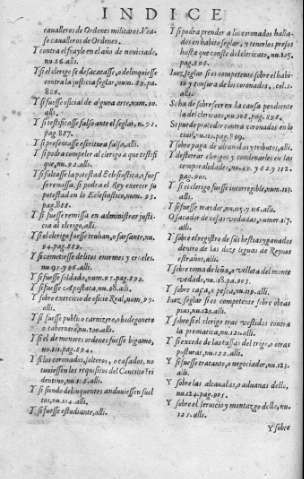 INDICE
caualleros de Ordenes militares. Vea-
se caualleros de Ordenes.
Y contra el frayle en el año de nouiciado,
nu.26.alli.
Y si el clerigo se desacatasse, o delinquiesse
contra la justicia seglar, num.
Y si fuesse oficial de alguna arte, num.
alli.
Y si testificasse falso ante el seglar, n.91.
pag.887.
Y si presentasse escritura falsa, alli.
Y si podra compeler al clerigo a que testifi-
que, nu.92.alli.
Y si faltasse la potestad Eclesiastica, fues
se remissa, si podra el Rey exercer su
potestad en lo Eclesiastico, num.
alli.
Y si fuesse remissa en administrar justi-
cia al clerigo, alli.
Y si el clerigo fuesse truhan, o farsante, nu.
Y si cometiesse delitos enormes y crueles.
nu.95.y 96.alli.
Y si fuesse soldado, nu.97.pag.
Y si fuesse Apostata, nu.98.alli.
Y sobre exercicio de oficio Real, num.99.
alli.
Y si fuesse publico carnicero, bodegonero
o tabernero, nu.
Y si el de menores ordenes fuesse bigamo,
nu.
Y si los coronados, solteros, o casados, no
tuuiessen los requisitos del Concilio Tri
dentino, nu.
Y si siendo delinquentes anduuiessen suel
tos, nu.114.alli.
Y si fuesse estudiante, alli.
Y si podra prender a los coronados halla-
dos en habito seglar, y tenerlos presos
hasta que conste del clericato, nu.
pag.
Iuez seglar si es competente sobre el habi-
to y tonsura de los coronados,
alli.
Si ha de sobreseer en la causa pendiente
la del clericato, nu.108.pag.
Si puede proceder contra coronados en lo
ciuil, nu.
Y sobre paga de alcaualas y tributos, alli.
Y desterrar clerigos y condenarlos en las
temporalidades, nu. 61.y 62.y 112.
pag.901.
Y si el clerigo fuesse incorregible, num.113.
alli.
Y si fuesse matador, nu.115.y 116.alli.
O sacador de cosas vedadas, numer.117.
alli.
Y sobre el registro de sus bestias y ganados
dentro de las diez leguas de Reynos
estraños, alli.
Y sobre toma de leña, o vellota del monte
vedado, nu.118.pag.
Y sobre caça, o pesca, nu.119.alli.
Iuez seglar si es competente sobre obras
pias, nu.
Y sobre si el clerigo trae vestidos contra
la prematica, nu.121.alli.
Y si excede de las tassas del trigo, o otras
posturas, nu.122.alli.
Y si fuesse tratante, o negociador, nu.123.
alli.
Y sobre las alcaualas, o aduanas dello,
nu.124.pag.
Y sobre el seruicio y montazgo dello, nu.
125.alli.
Y sobre